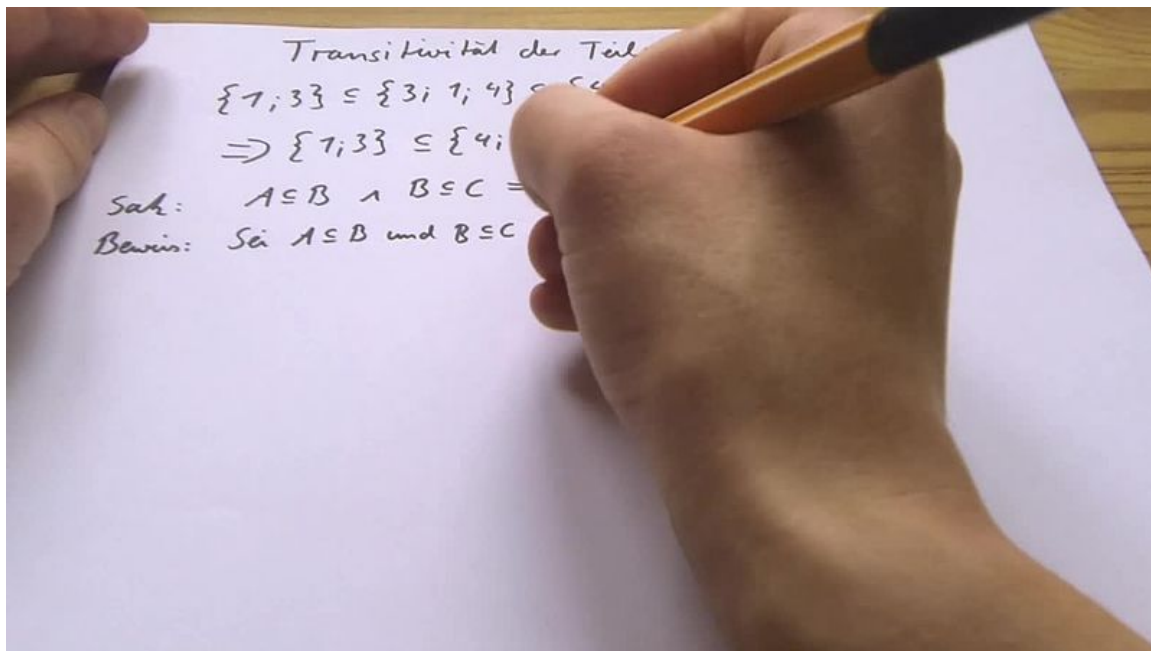 Transitivität der Teil
{1;3} ⊆ {3; 1; 4} ⊆ {4
⇒ {1;3} ⊆ {4;
Satz: A⊆B ∧ B⊆C =
Beweis: Sei A⊆B und B⊆C